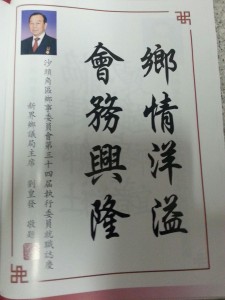 鄉情洋溢
會務興隆
沙頭角區鄉事委員會第三十四屆執行委員就職誌慶
新界鄉議局主席 劉皇發 敬題